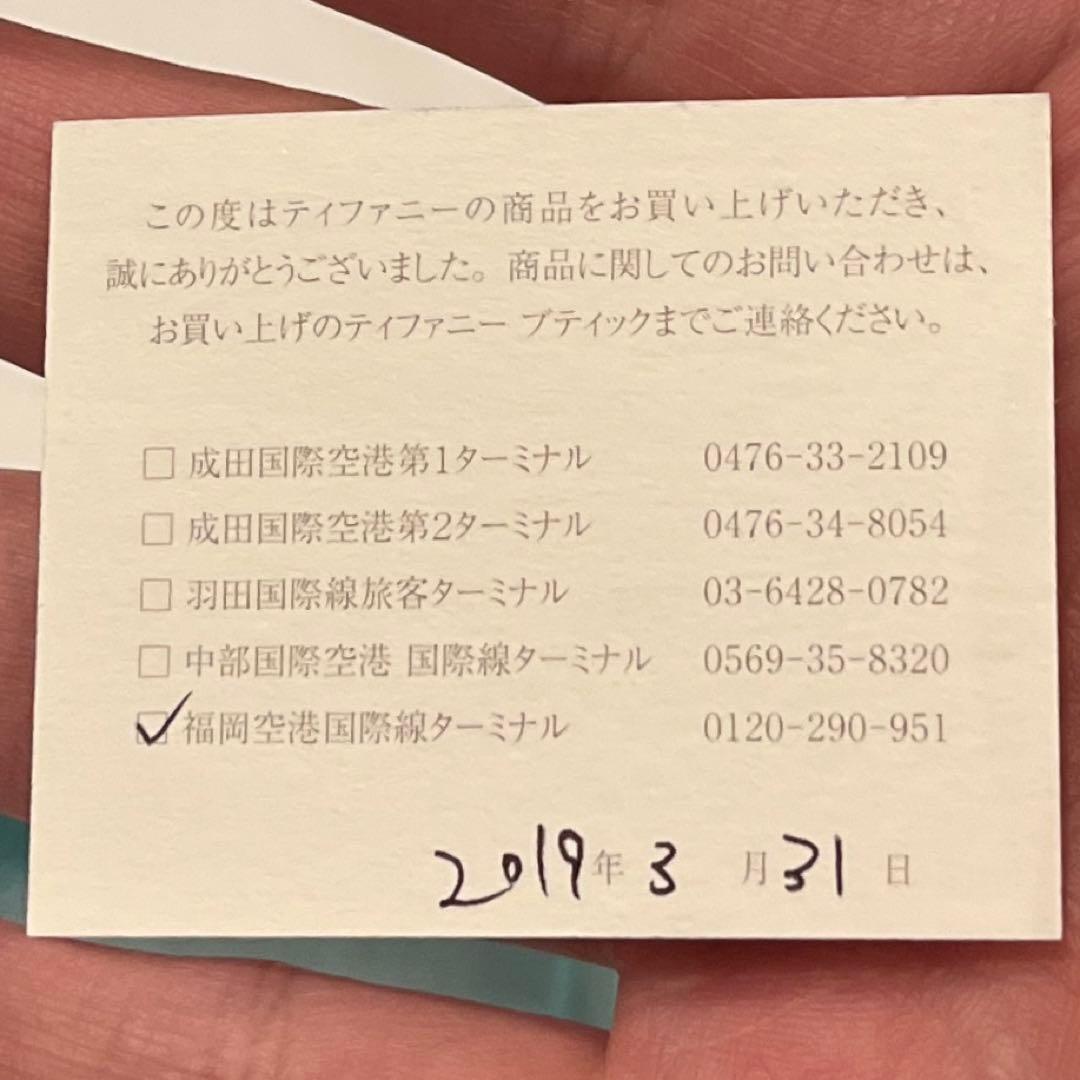 この度はティファニーの商品をお買い上げいただき、
誠にありがとうございました。商品に関してのお問い合わせは、
お買い上げのティファニー ブティックまでご連絡ください。
□ 成田国際空港第1ターミナル 0476-33-2109
□ 成田国際空港第2ターミナル 0476-34-8054
□ 羽田国際線旅客ターミナル 03-6428-0782
□ 中部国際空港 国際線ターミナル 0569-35-8320
☑ 福岡空港国際線ターミナル 0120-290-951
2019年 3 月 31 日